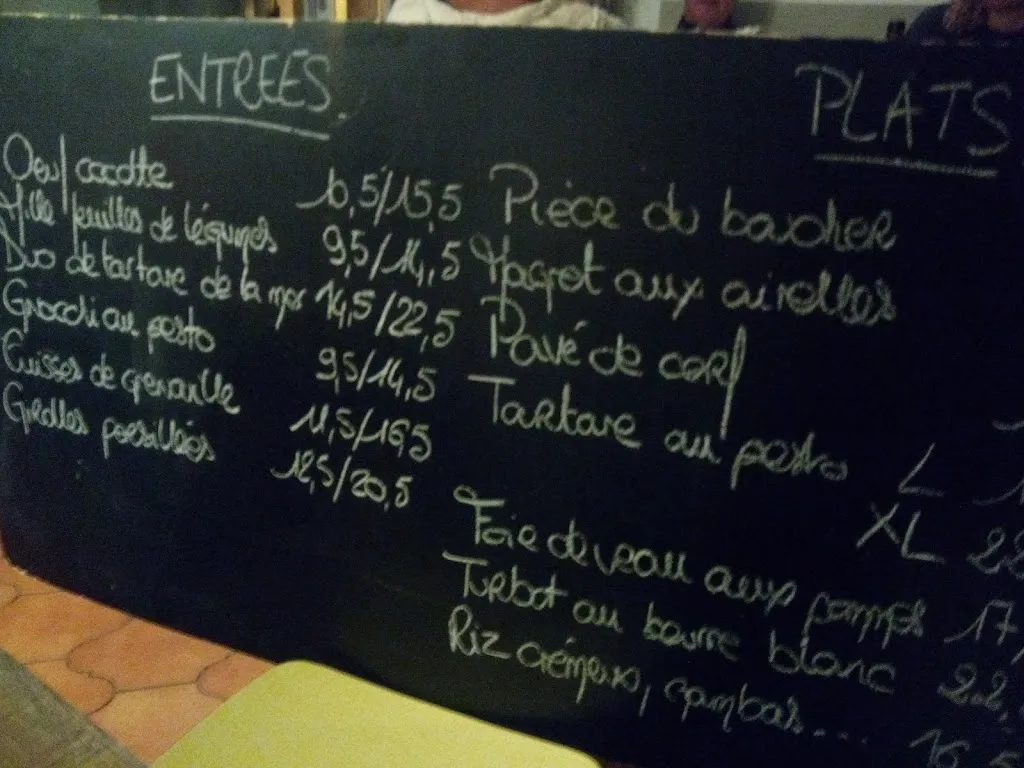 ENTREES
Oeuf cocotte 10,5/15,5
Mille feuilles de légumes 9,5/14,5
Duo de tartare de la mer 14,5/22,5
Gnocchi au pesto 9,5/14,5
Cuisses de grenouille 11,5/16,5
Girolles persillées 12,5/20,5
PLATS
Pièce du boucher
Magret aux airelles
Pavé de cerf
Tartare au pesto L
XL
Foie de veau aux 17,
Turbot au beurre blanc 22,
Riz crémeux, gambas....